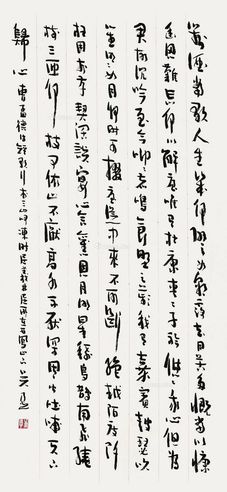 對酒當歌人生幾何譬如朝露去日苦多慨當以慷
憂思難忘何以解憂唯有杜康青青子衿悠悠我心但為
君故沉吟至今呦呦鹿鳴食野之苹我有嘉賓鼓瑟吹
笙明明如月何時可掇憂從中來不可斷絕越陌度阡
枉用相存契闊談宴心念舊恩月明星稀烏鵲南飛繞
樹三匝何枝可依山不厭高水不厭深周公吐哺天下
歸心 曹孟德短歌行